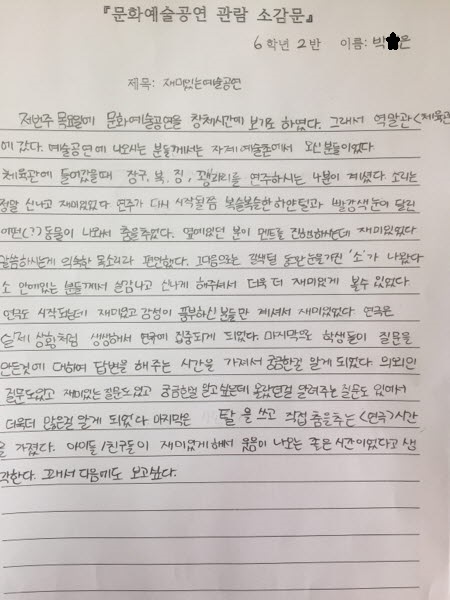 『문화예술공연 관람 소감문』
6학년 2반 이름: 박 은
제목: 재미있는예술공연
저번주 목요일에 문화예술공연을 창체시간에 보기로 하였다. 그래서 역말관<체육관>
에 갔다. 예술공연에 나오시는 분들께서는 자제예술촌에서 오신분들이었다
체육관에 들어갔을때 장구, 북, 징, 꽹과리를 연주하시는 4분이 계셨다. 소리는
정말 신나고 재미있었다 연주가 다시 시작될쯤 복슬복슬한 하얀털과 빨강색눈이 달린
어떤(?)동물이 나와서 춤을추었다. 옆에있던 분이 멘트를 진행하시는데 재미있었다
말씀하시는게 익숙한 목소리라 편안했다. 그다음으로는 갈색털 동반눈물가면 '소'가 나왔다
소 안에있는 분들께서 실감나고 신나게 해주셔서 더욱 더 재미있게 볼수 있었다
연극도 시작되는데 재미있고 감정이 풍부하신 분들만 계셔서 재미있었다 연극은
실제 상황처럼 생생해서 연극에 집중되게 되었다. 마지막으로 학생들이 질문을
만든것에 대하여 답변을 해주는 시간을 가져서 궁금한걸 알게 되었다. 의외인
질문도있고 재미있는 질문도있고 궁금한걸 알고싶은데 몰랐던걸 알려주는 질문도 있어서
더욱더 많은걸 알게 되었다 마지막은 탈 을 쓰고 직접 춤을추는 <연극>시간
을 가졌다. 아이들/친구들이 재미있게 해서 웃음이 나오는 좋은 시간이었다고 생
각한다. 그래서 다음에도 보고싶다.